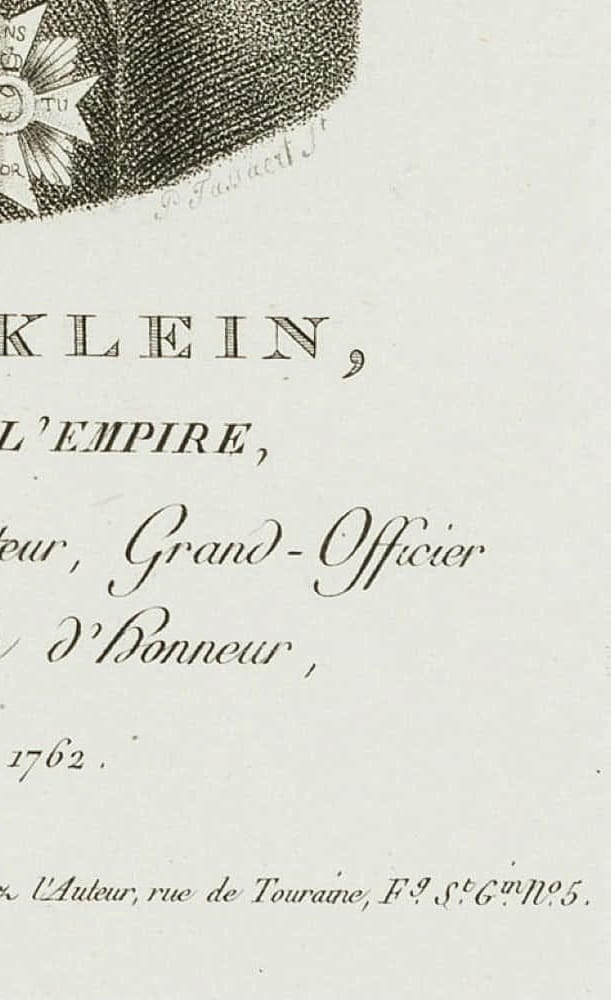 NS
TU
OR
P. Tassaert St
KLEIN,
L'EMPIRE,
teur, Grand-Officier
d'honneur,
1762.
l'Auteur, rue de Touraine, Fg. St. Gin. No. 5.